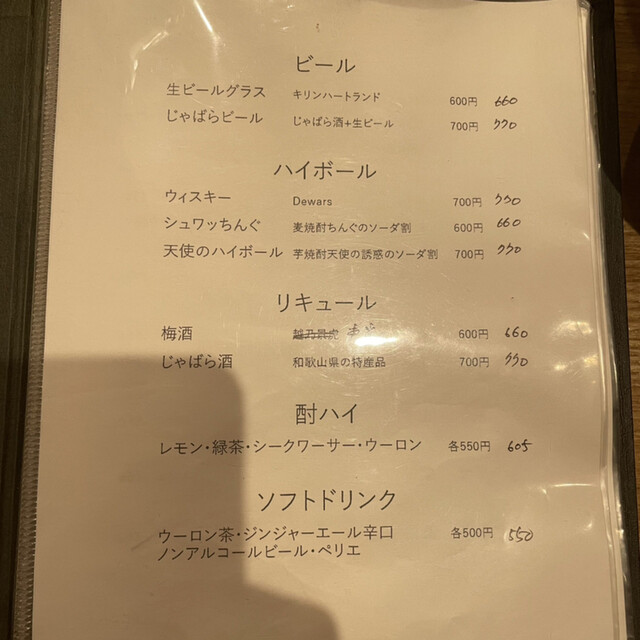 ビール
生ビールグラス キリンハートランド 600円 660
じゃばらビール じゃばら酒+生ビール 700円 770
ハイボール
ウィスキー Dewars 700円 770
シュワッちんぐ 麦焼酎ちんぐのソーダ割 600円 660
天使のハイボール 芋焼酎天使の誘惑のソーダ割 700円 770
リキュール
梅酒 越乃景虎 600円 660
じゃばら酒 和歌山県の特産品 700円 770
酎ハイ
レモン・緑茶・シークワーサー・ウーロン 各550円 605
ソフトドリンク
ウーロン茶・ジンジャーエール辛口 各500円 550
ノンアルコールビール・ペリエ